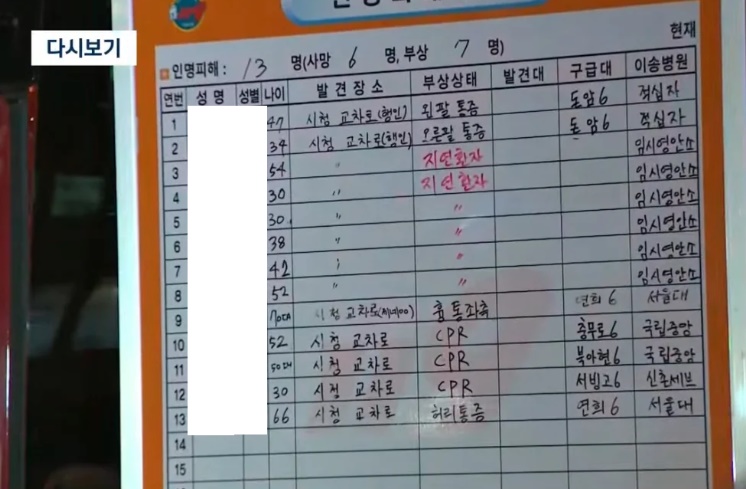 다시보기
현재
인명피해 : 13 명(사망 6 명, 부상 7 명)
연번 성 명 성별 나이 발 견 장 소 부상상태 발견대 구급대 이송병원
1 47 시청 교차로(행인) 왼팔 통증 돈암6 적십자
2 34 시청 교차로(행인) 오른팔 통증 돈암6 적십자
3 54 〃 지연환자 임시영안소
4 30 〃 지연환자 임시영안소
5 30 〃 〃 임시영안소
6 38 〃 〃 임시영안소
7 42 〃 〃 임시영안소
8 52 〃 〃 임시영안소
9 시청 교차로 흉통좌측 연희6 서울대
10 52 시청 교차로 CPR 충무로6 국립중앙
11 50대 시청 교차로 CPR 북아현6 국립중앙
12 30 시청 교차로 CPR 서빙고6 신촌세브
13 66 시청 교차로 허리통증 연희6 서울대
14
15